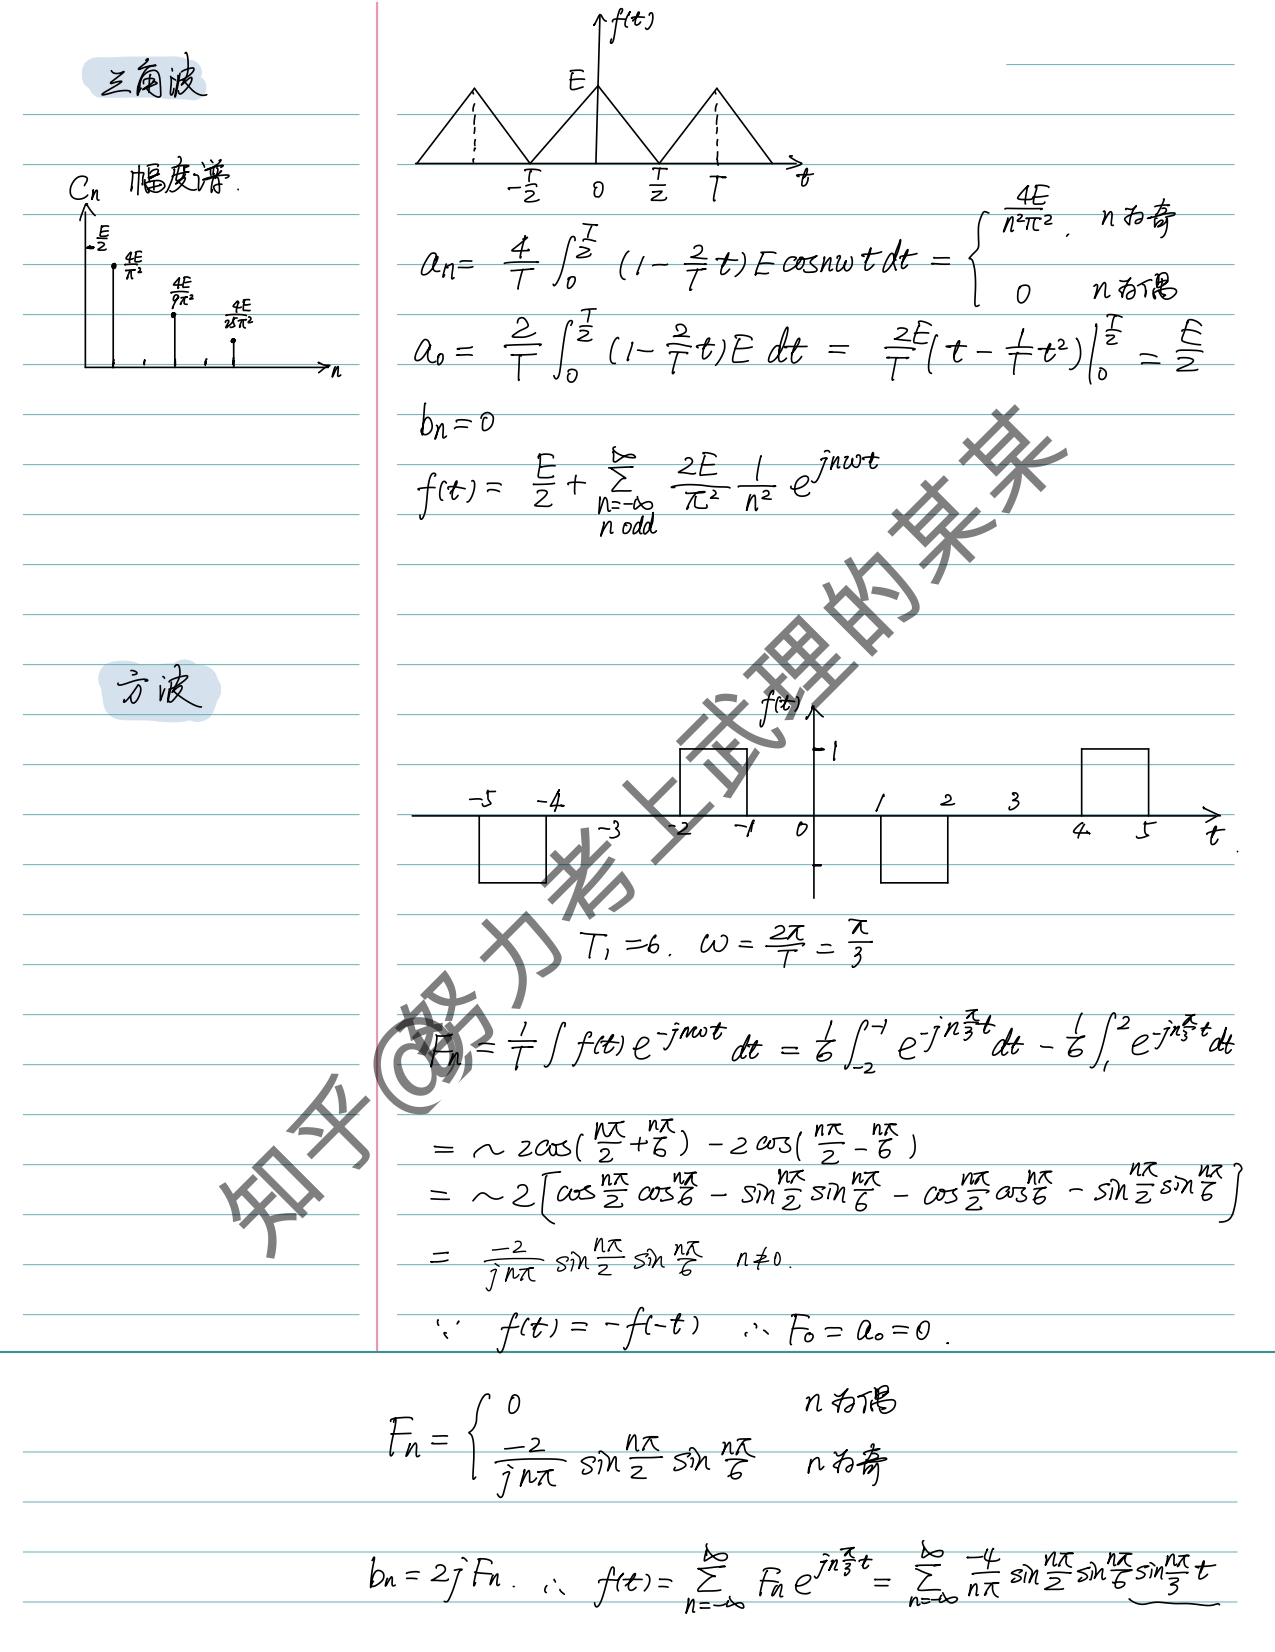 三角波
f(t)
E
-T/2 0 T/2 T t
幅度谱.
Cn
E/2
4E/π²
4E/9π²
4E/25π²
n
an = 4/T ∫₀^(T/2) (1 - 2/T t) E cosnωt dt = { 4E/n²π², n为奇
0 n为偶
a₀ = 2/T ∫₀^(T/2) (1 - 2/T t) E dt = 2E/T (t - 1/T t²)|₀^(T/2) = E/2
bn = 0
f(t) = E/2 + ∑_(n=-∞, n odd)^∞ 2E/π² 1/n² e^(jnωt)
方波
f(t)
1
-5 -4 -3 -2 -1 0 1 2 3 4 5 t
T₁ = 6. ω = 2π/T = π/3
Fn = 1/T ∫ f(t) e^(-jnωt) dt = 1/6 ∫_(-2)^(-1) e^(-jn π/3 t) dt - 1/6 ∫₁² e^(-jn π/3 t) dt
= ~ 2cos(nπ/2 + nπ/6) - 2cos(nπ/2 - nπ/6)
= ~ 2[cos nπ/2 cos nπ/6 - sin nπ/2 sin nπ/6 - cos nπ/2 cos nπ/6 - sin nπ/2 sin nπ/6]
= -2/jnπ sin nπ/2 sin nπ/6 n≠0.
∵ f(t) = -f(-t) ∴ F₀ = a₀ = 0.
Fn = { 0 n为偶
-2/jnπ sin nπ/2 sin nπ/6 n为奇
bn = 2jFn. ∴ f(t) = ∑_(n=-∞)^∞ Fn e^(jn π/3 t) = ∑_(n=-∞)^∞ -4/nπ sin nπ/2 sin nπ/6 sin nπ/3 t
知乎@努力考上武理的某某